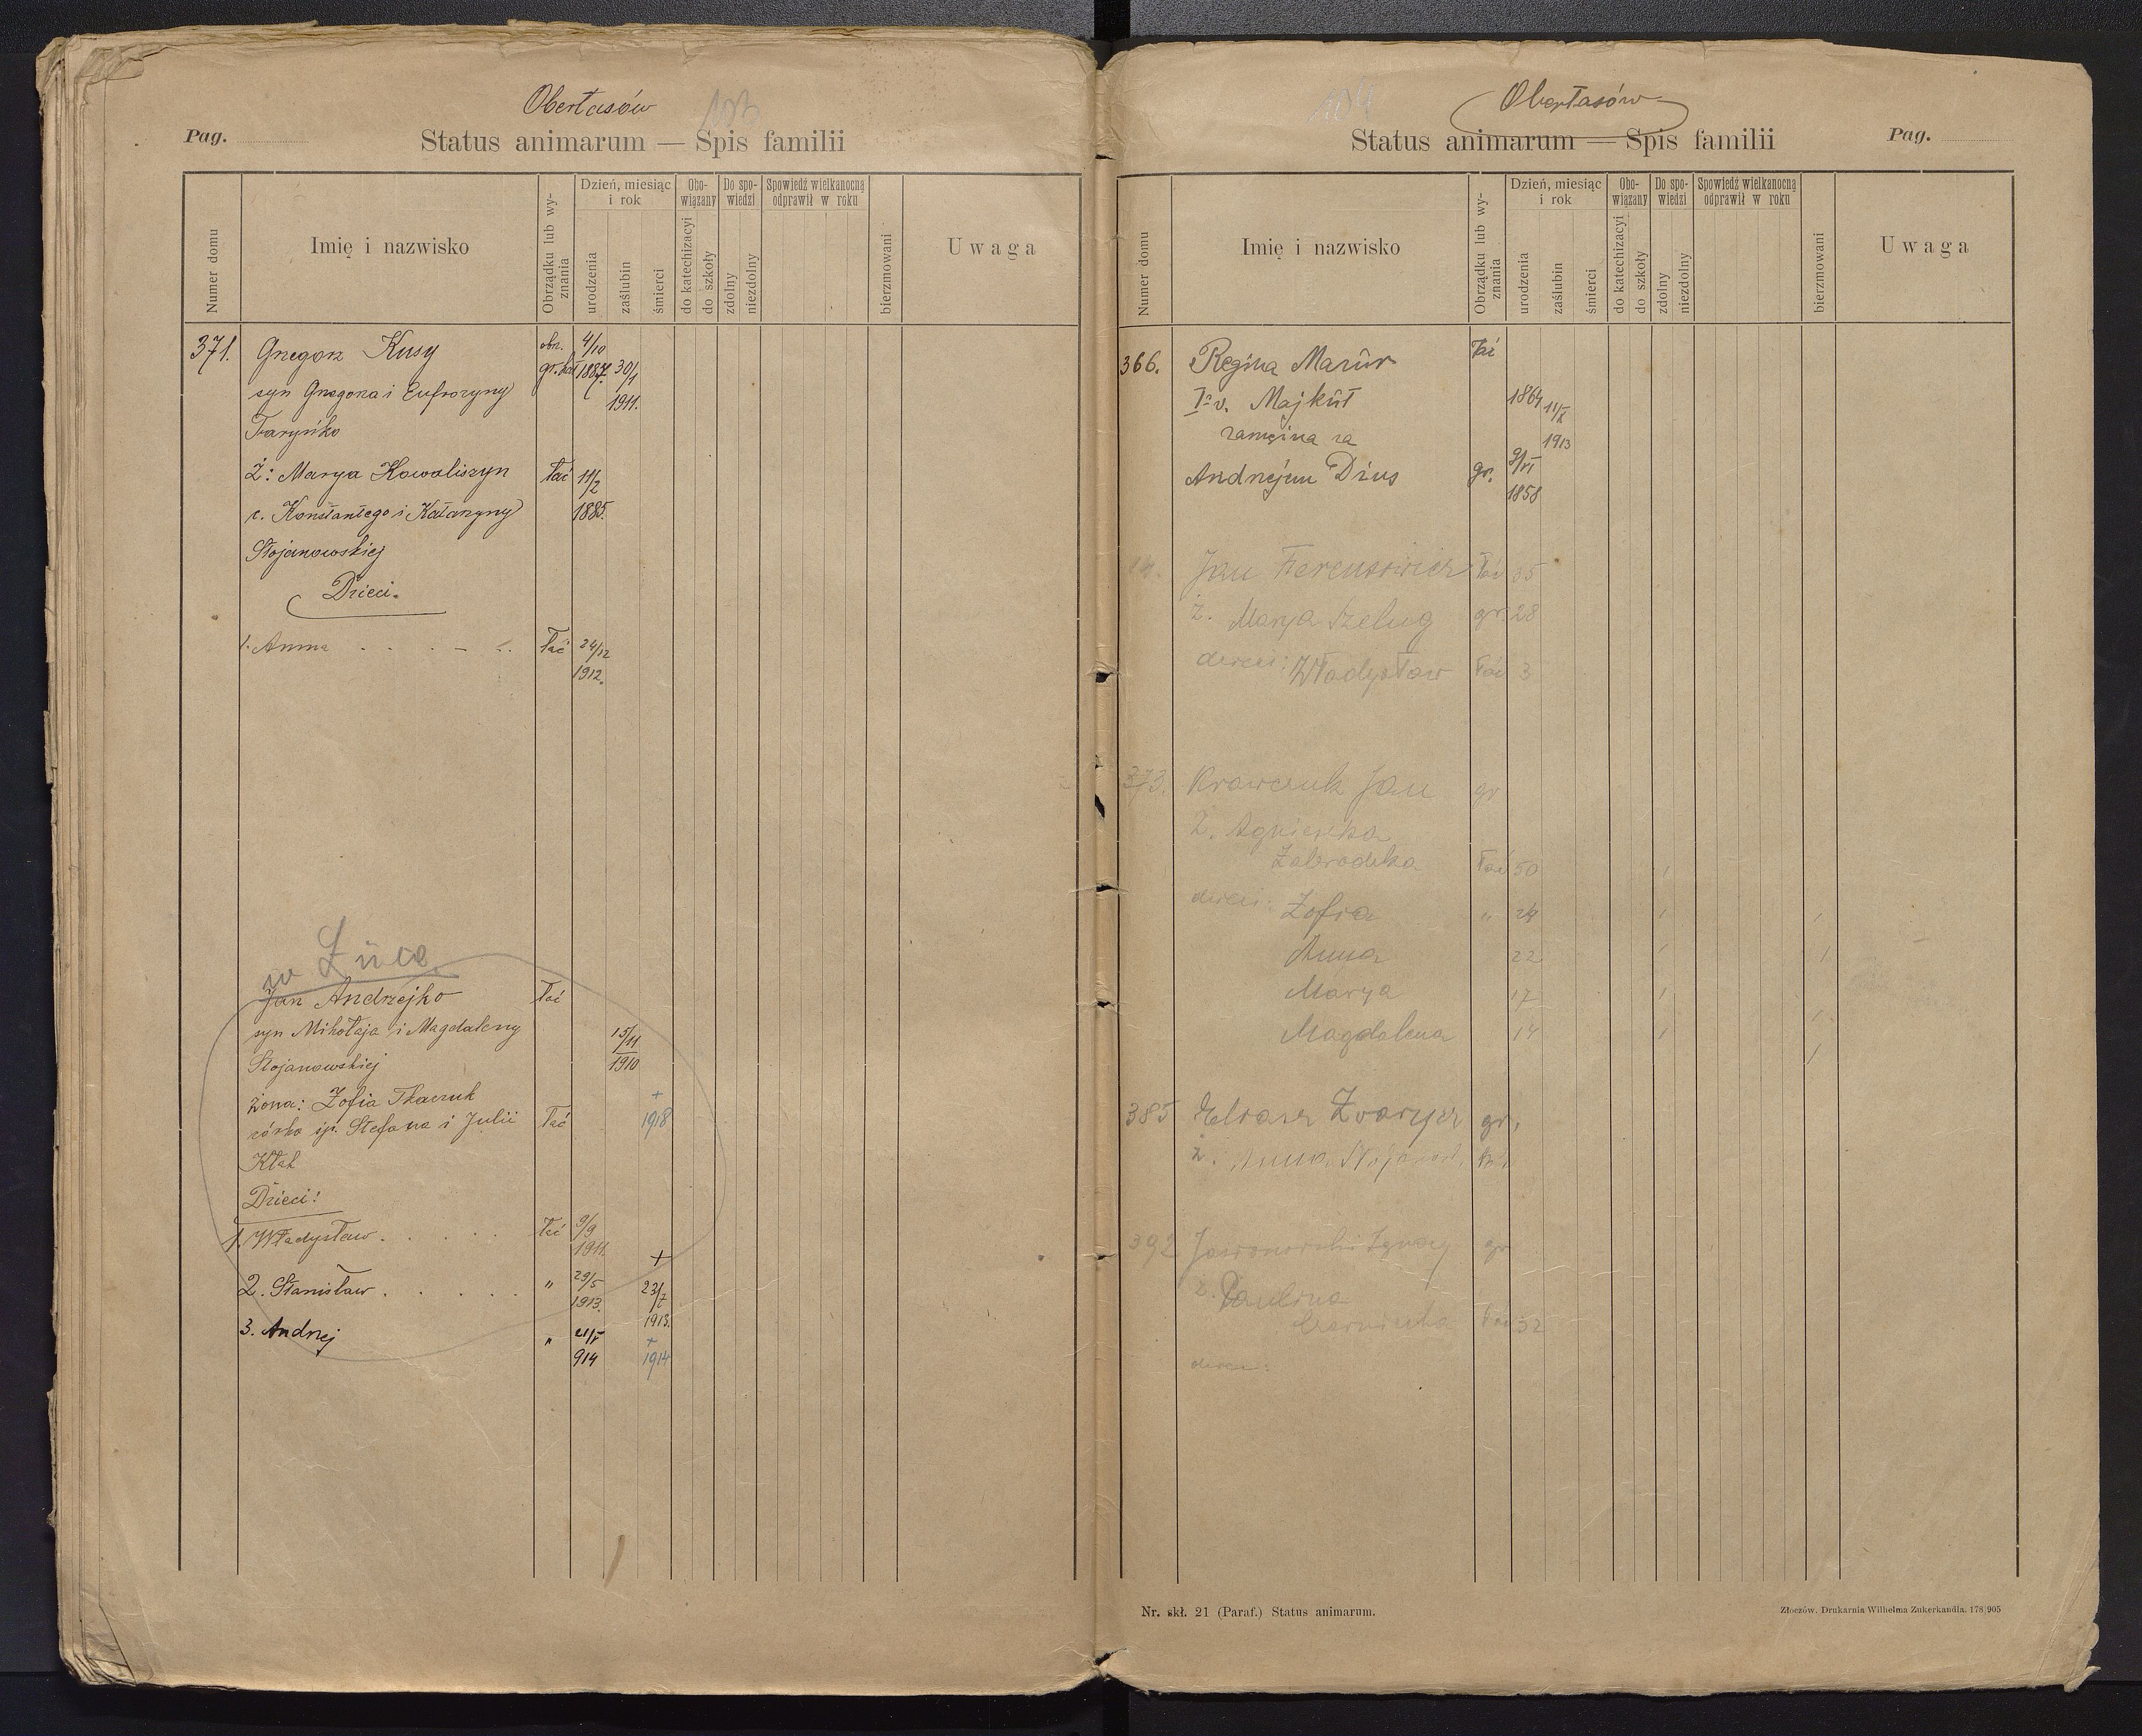 Obertasów 103
Pag.
Status animarum — Spis familii
Numer domu
Imię i nazwisko
Obrządku lub wyznania
Dzień, miesiąc i rok
urodzenia
zaślubin
śmierci
Obowiązany
do katechizacyi
do szkoły
Do spowiedzi
zdolny
niezdolny
Spowiedź wielkanocną odprawił w roku
bierzmowani
Uwaga
371. Grzegorz Kusy obrz. 4/10
gr. kat 1887. 30/1
syn Grzegorza i Eufrozyny 1911.
Faryńko
Ż: Marya Kowaliszyn łać 11/2
c. Konstantego i Katarzyny 1885.
Stojanowskiej
Dzieci.
1. Anna łać 24/12
1912.
w Łuce
Jan Andrzejko łać
syn Mikołaja i Magdaleny 15/11
Stojanowskiej 1910
żona: Zofia Tkaczuk +
córka śp. Stefana i Julii łać 1918
Kłak
Dzieci:
1. Władysław łać 9/9
1911.
2. Stanisław " 29/5 + 23/7
1913. 1913.
3. Andrzej " 21/V +
914 1914
104 Obertasów
Status animarum — Spis familii
Pag.
Numer domu
Imię i nazwisko
Obrządku lub wyznania
Dzień, miesiąc i rok
urodzenia
zaślubin
śmierci
Obowiązany
do katechizacyi
do szkoły
Do spowiedzi
zdolny
niezdolny
Spowiedź wielkanocną odprawił w roku
bierzmowani
Uwaga
366. Regina Mazur łać
I-o v. Majkut 1864 11/X
zamężna za 1913
Andrzejem Dzius gr. 9/VI
1858
Jan Ferensowicz łać 35
ż. Marya Szeług gr. 28
dzieci: Władysław łać 3
373. Krawczuk Jan gr
Ż. Agnieszka
Zabrodzka łać 50
dzieci: Zofia " 24
Anna 22
Marya 17
Magdalena 14
385 Eliasz Zvarycz gr.
ż. Anna
392 Jaworowski Ignacy gr
ż. Paulina
łać 32
dzieci:
Nr. skł. 21 (Paraf.) Status animarum.
Złoczów. Drukarnia Wilhelma Zukerkandla. 178|905